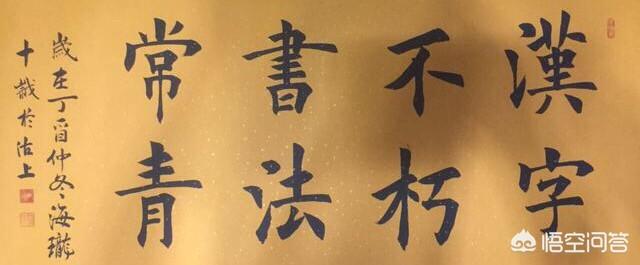 漢字
不朽
書法
常青
歲在丁酉仲冬海瓏
十戲於沽上
悟空问答